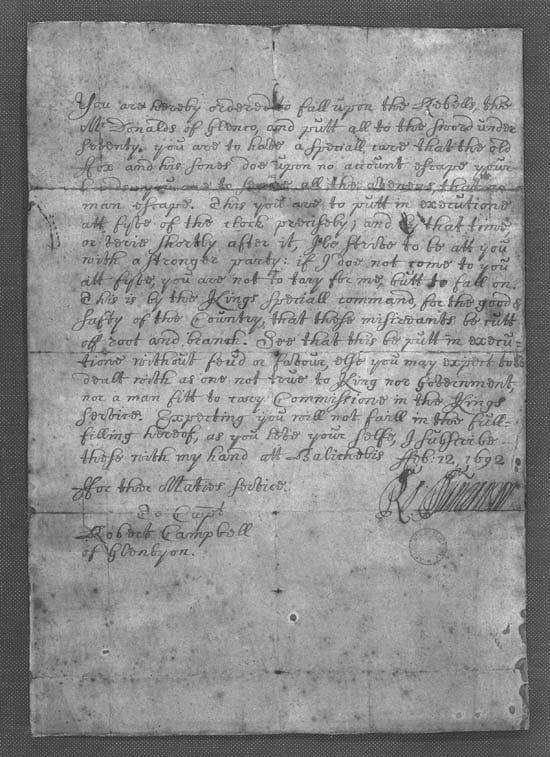 You are hereby ordered to fall upon the Rebells, the
McDonalds of Glenco, and putt all to the sword under
seventy. you are to have a speciall care that the old
Fox and his sones doe upon no account escape your
hands, you are to secure all the avenues that no
man escape. This you are to putt in executione
att fyve of the clock precisely; and by that time
or verie shortly after it, I'le strive to be att you
with a stronger party: if I doe not come to you
att fyve, you are not to tary for me, butt to fall on.
This is by the Kings speciall command, for the good &
safty of the Country, that these miscreants be cutt
off root and branch. See that this be putt in execu=
tione without feud or favour, else you may expect to be
dealt with as one not true to King nor Government,
nor a man fitt to cary Commissione in the Kings
service. Expecting you will not faill in the full=
filling hereof, as you love your selfe, I subscribe
these with my hand att Balicholis Feb: 12, 1692
For their Maties service.
To Capt
Robert Campbell
of Glenlyon.